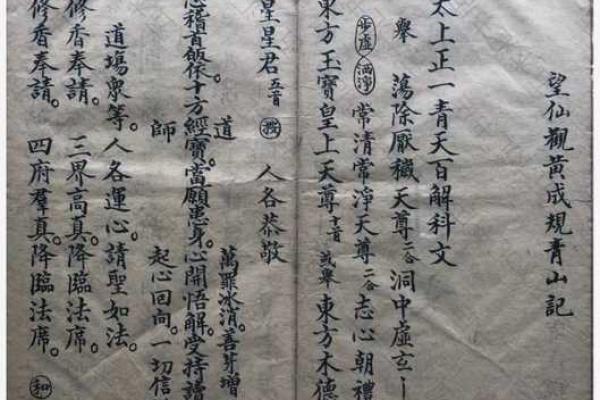 望仙觀黃成規青山記
太上正一青天百解科文
舉 蕩除厭穢天尊二合 洞中虛玄
步虛 洒淨 常清常淨天尊二合 志心朝禮
東方玉寶皇上天尊 或舉 東方木德
星君五音 人各恭敬
道 萬罪冰消。善芽增
心稽首皈依十方經寶。當願患身。心開悟解。受持讀
師 起心回向。一切信
道場衆等。人各運心。請聖如法。
修香奉請。三界高真。降臨法席。
修香奉請。四府羣真。降臨法席。和